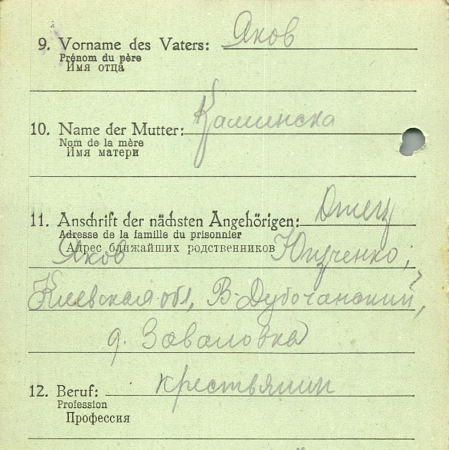 9. Vorname des Vaters: Яков
Prénom du père
Имя отца
10. Name der Mutter: Каминска
Nom de la mère
Имя матери
11. Anschrift der nächsten Angehörigen: Отец
Adresse de la famille du prisonnier
Адрес ближайших родственников
Яков Ющенко,
Киевская обл, В-Дубечанский,
д. Заваловка
12. Beruf: крестьянин
Profession
Профессия